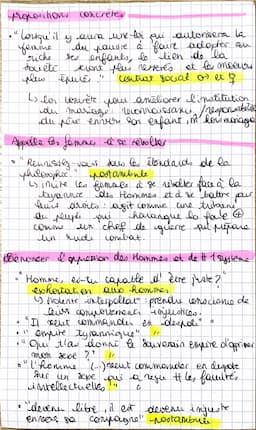 propositions concrètes
• "Lorsqu'il y aura une loi qui autorisera la
femme du pauvre à faire adopter au
riche ses enfants, le lien de la
société sera plus resserré et les moeurs
plus épurées." Contrat social
↳ loi concrète pour améliorer l'institution
du mariage
du père envers son enfant,
Appelle les femmes à se révolter
• "Réunissez-vous sous les étendards de la
philosophie" postambule
↳ incite les femmes à se révolter face à la
tyrannie des Hommes et à se battre pour
leurs droits : agit comme une tribune
du peuple qui harangue la foule ⊕
comme un chef de guerre qui prépare
un rude combat.
Dénoncer l'oppression des Hommes et de système
• "Homme, es-tu capable d'être juste?"
exhortation aux hommes
↳ violente interpellation : prendre conscience de
leurs comportements injustes.
• "Il veut commander en despote" "
• "empire tyrannique" "
• "Qui t'a donné le souverain empire d'opprimer
mon sexe ?" "
• "l'homme (...) veut commander en despote
sur un sexe qui a reçu tt les facultés
intellectuelles" "
• "devenu libre, il est devenu injuste
envers sa compagne" - postambule